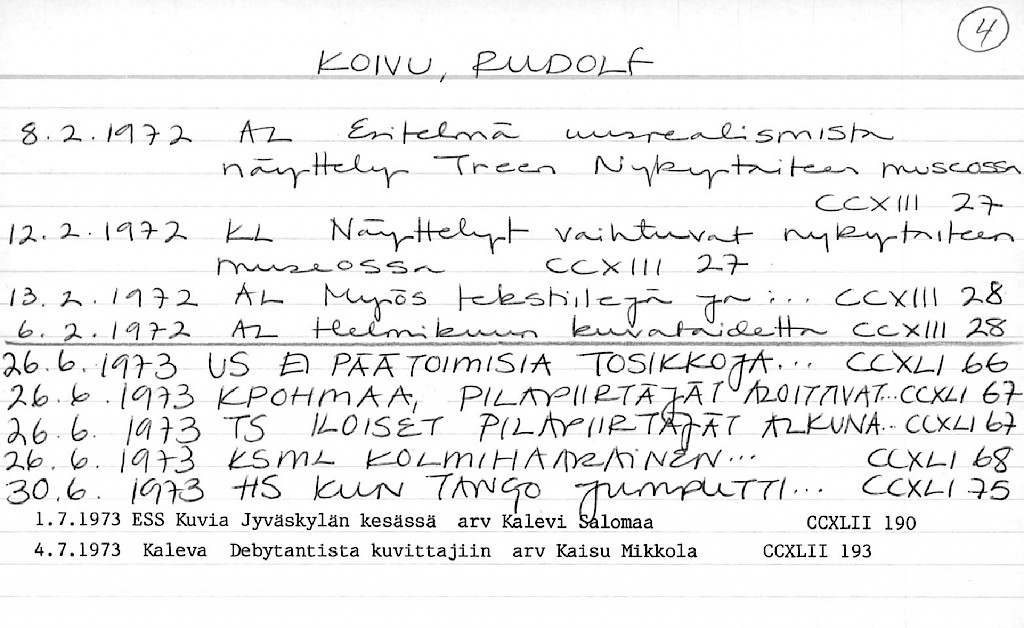 4
KOIVU, RUDOLF
8.2.1972 AL Esitelmä uusrealismista
näyttely Treen Nykytaiteen museossa
CCXIII 27
12.2.1972 KL Näyttelyt vaihtuvat nykytaiteen
museossa CCXIII 27
13.2.1972 AL Myös tekstiilejä ja ... CCXIII 28
6.2.1972 AL Helmikuun kuvataidetta CCXIII 28
26.6.1973 US EI PÄÄTOIMISIA TOSIKKOJA... CCXLI 66
26.6.1973 KPOHMAA, PILAPIIRTÄJÄT ALOITTIVAT... CCXLI 67
26.6.1973 TS ILOISET PILAPIIRTÄJÄT ALKUNA.. CCXLI 67
26.6.1973 KSML KOLMIHAARAINEN... CCXLI 68
30.6.1973 HS KUN TANGO JUMPUTTI... CCXLI 75
1.7.1973 ESS Kuvia Jyväskylän kesässä arv Kalevi Salomaa CCXLII 190
4.7.1973 Kaleva Debytantista kuvittajiin arv Kaisu Mikkola CCXLII 193